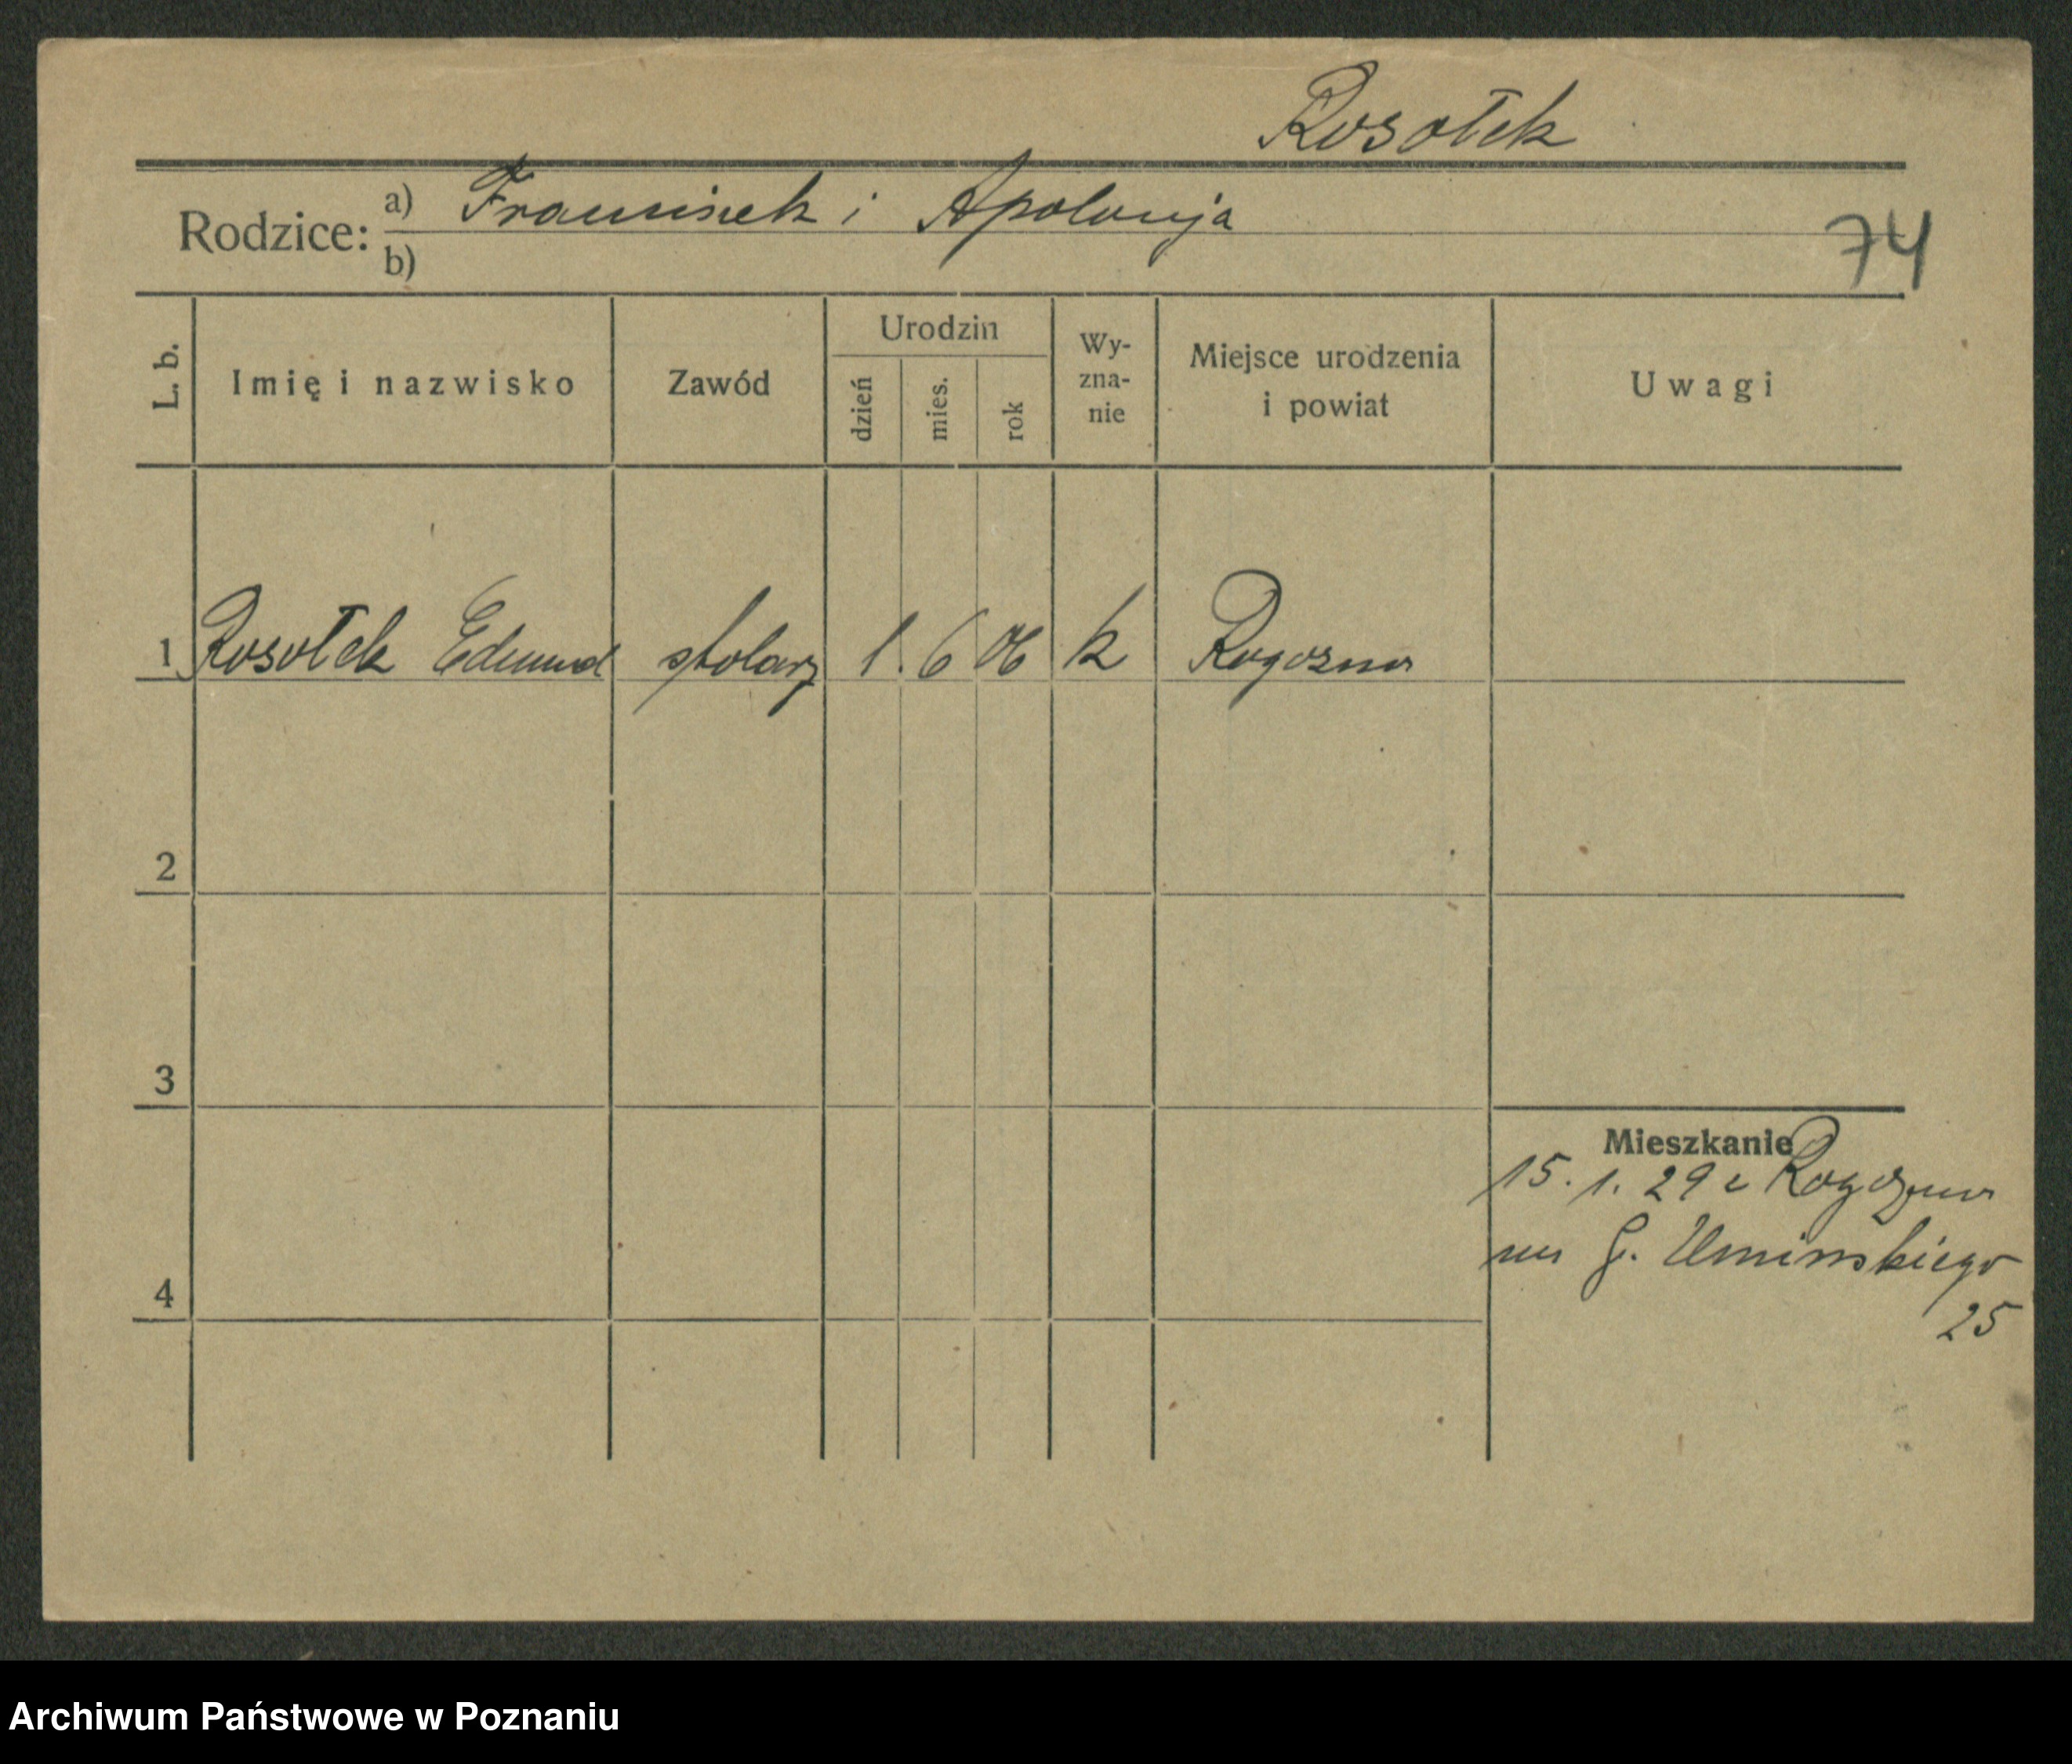 Rosołek
Rodzice: a) Franciszek i Apolonja
b)
74
L. b. Imię i nazwisko Zawód Urodzin dzień mies. rok Wy-zna-nie Miejsce urodzenia i powiat Uwagi
1 Rosołek Edmund stolarz 1. 6 06 k Rogozna
2
3
Mieszkanie
15. 1. 29 z Rogozna
na G. Uminskiego
4
25
Archiwum Państwowe w Poznaniu